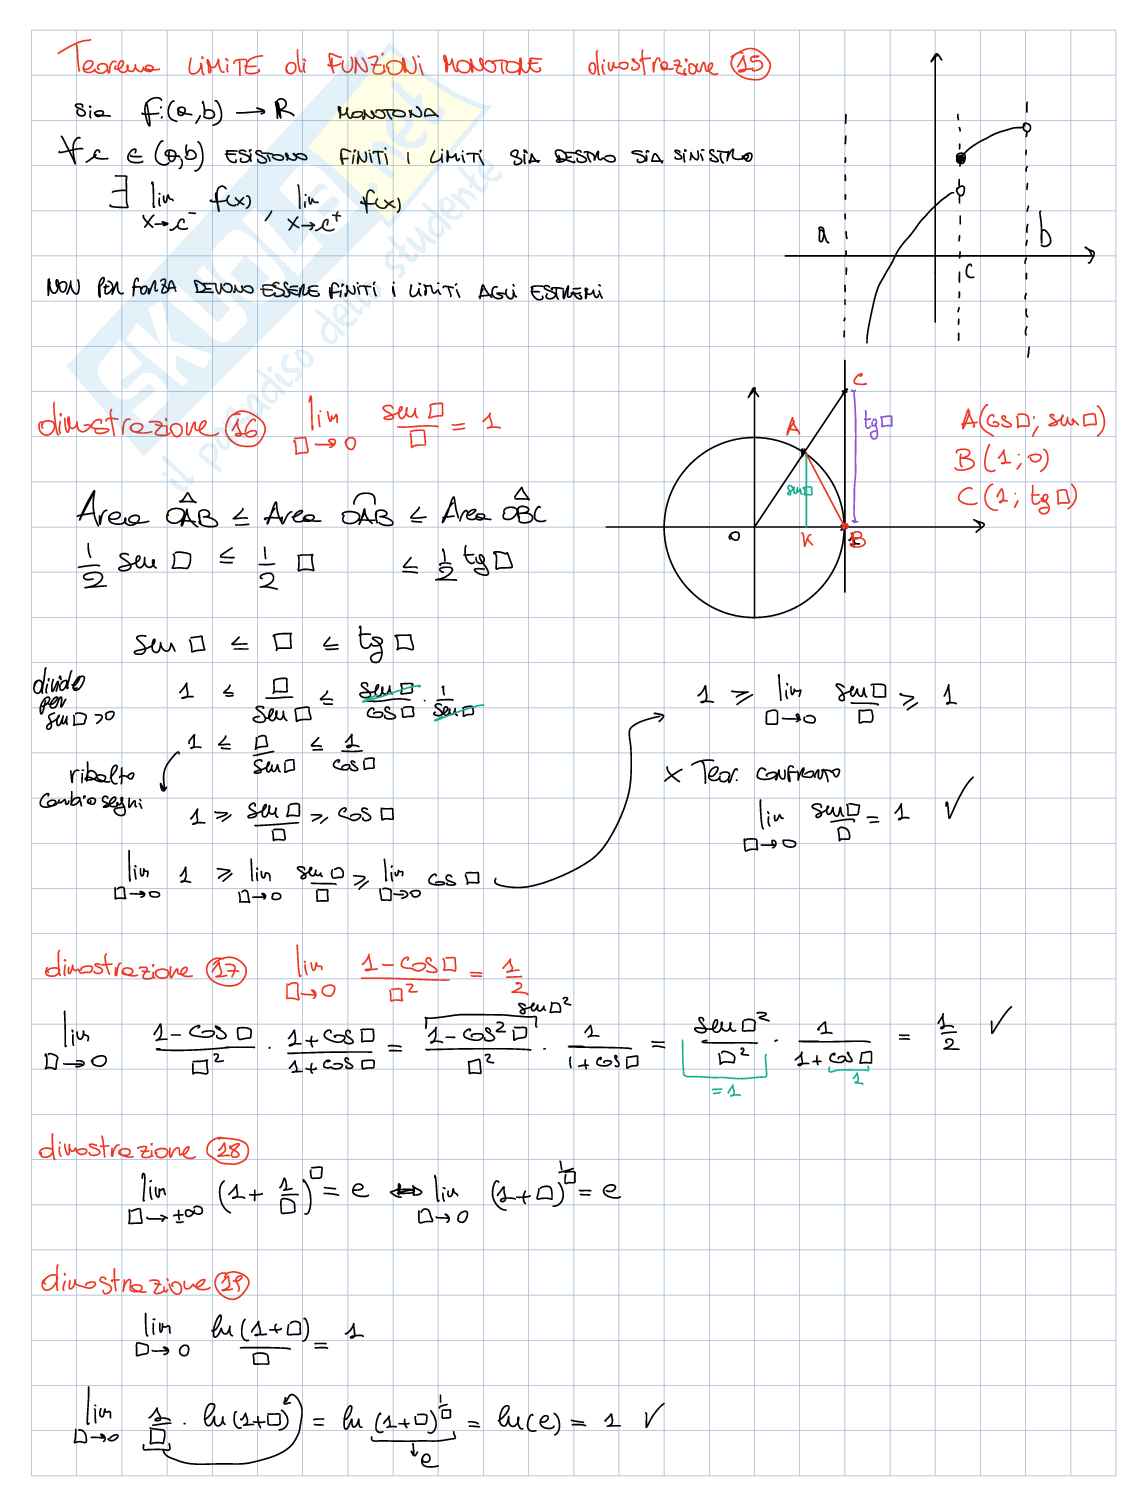 Teorema LIMITE di FUNZIONI MONOTONE dimostrazione 15
Sia f:(a,b) → R MONOTONA
∀ c ∈ (a,b) ESISTONO FINITI I LIMITI SIA DESTRO SIA SINISTRO
∃ lim x→c⁻ f(x), lim x→c⁺ f(x)
NON PER FORZA DEVONO ESSERE FINITI I LIMITI AGLI ESTREMI
a
c
b
SKUOLA.net
il paradiso dello studente
dimostrazione 16 lim □→0 sen□/□ = 1
A
C
tg□
sen□
O
K
B
1
A(cos□; sen□)
B(1;0)
C(1; tg□)
Area OAB ≤ Area OAB ≤ Area OBC
1/2 sen □ ≤ 1/2 □ ≤ 1/2 tg □
sen □ ≤ □ ≤ tg □
divido per sen□ >0
1 ≤ □/sen□ ≤ sen□/cos□ · 1/sen□
1 ≤ □/sen□ ≤ 1/cos□
ribalto
cambio segni
1 ≥ sen□/□ ≥ cos□
lim □→0 1 ≥ lim □→0 sen□/□ ≥ lim □→0 cos□
1 ≥ lim □→0 sen□/□ ≥ 1
x Teor. CONFRONTO
lim □→0 sen□/□ = 1 ✓
dimostrazione 17 lim □→0 (1-cos□)/□² = 1/2
sen□²
lim □→0 (1-cos□)/□² · (1+cos□)/(1+cos□) = (1-cos²□)/□² · 1/(1+cos□) = sen□²/□² · 1/(1+cos□) = 1/2 ✓
=1
1
dimostrazione 18
lim □→±∞ (1+1/□)^□ = e ⟷ lim □→0 (1+□)^(1/□) = e
dimostrazione 19
lim □→0 ln(1+□)/□ = 1
lim □→0 1/□ · ln(1+□) = ln(1+□)^(1/□) = ln(e) = 1 ✓
e